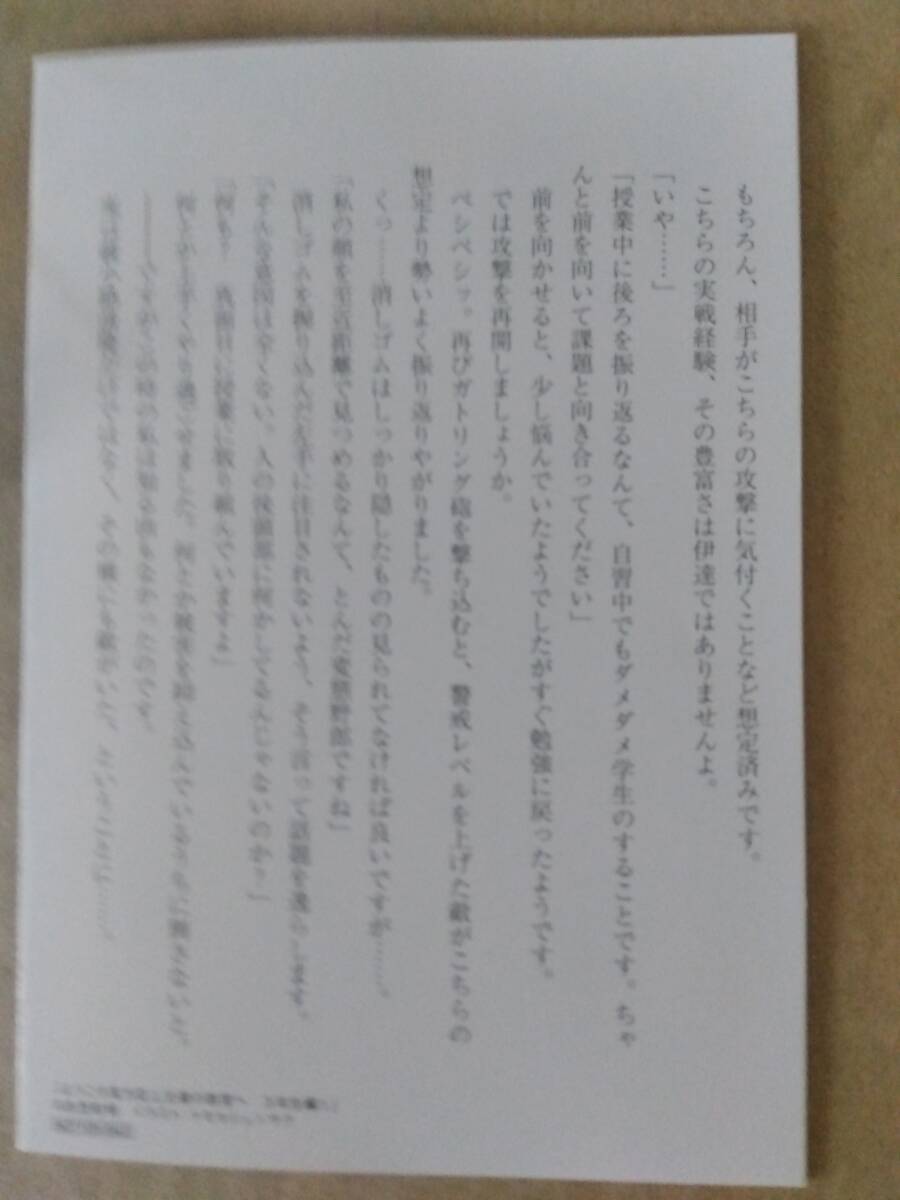 もちろん、相手がこちらの攻撃に気付くことなど想定済みです。
こちらの実戦経験、その豊富さは伊達ではありませんよ。
「いや……」
「授業中に後ろを振り返るなんて、自習中でもダメダメ学生のすることです。ちゃ
んと前を向いて課題と向き合ってください」
前を向かせると、少し悩んでいたようでしたがすぐ勉強に戻ったようです。
では攻撃を再開しましょうか。
ペシペシッ。再びガトリング砲を撃ち込むと、警戒レベルを上げた敵がこちらの
想定より勢いよく振り返りやがりました。
くっ……消しゴムはしっかり隠したものの見られてなければ良いですが……。
「私の顔を至近距離で見つめるなんて、とんだ変態野郎ですね」
消しゴムを握り込んだ左手に注目されないよう、そう言って話題を逸らします。
「そんな意図は全くない。人の後頭部に何かしてるんじゃないのか？」
「何も？　真面目に授業に取り組んでいますよ」
何とか上手くやり過ごせました。何とか
の時の私は知る由もなかったのです。